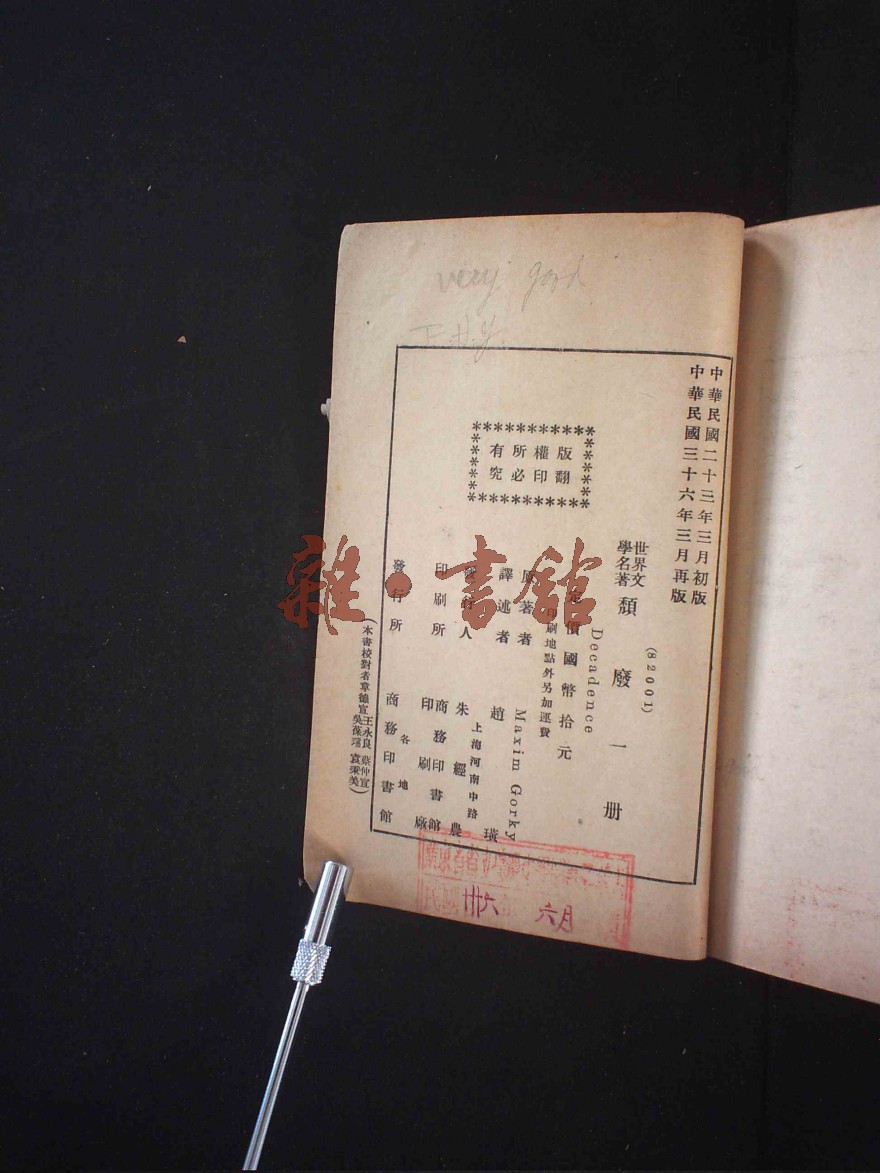 very good
中華民國二十三年三月初版
中華民國三十六年三月再版
(82001)
世界文學名著
頹廢 一 冊
Decadence
定價國幣拾元
印刷地點外另加運費
原著者 Maxim Gorky
譯述者 趙璜
發行人 朱經農
上海河南中路
印刷所 商務印書館印刷廠
發行所 各地商務印書館
版權所有
翻印必究
雜·書館
卅六 六月